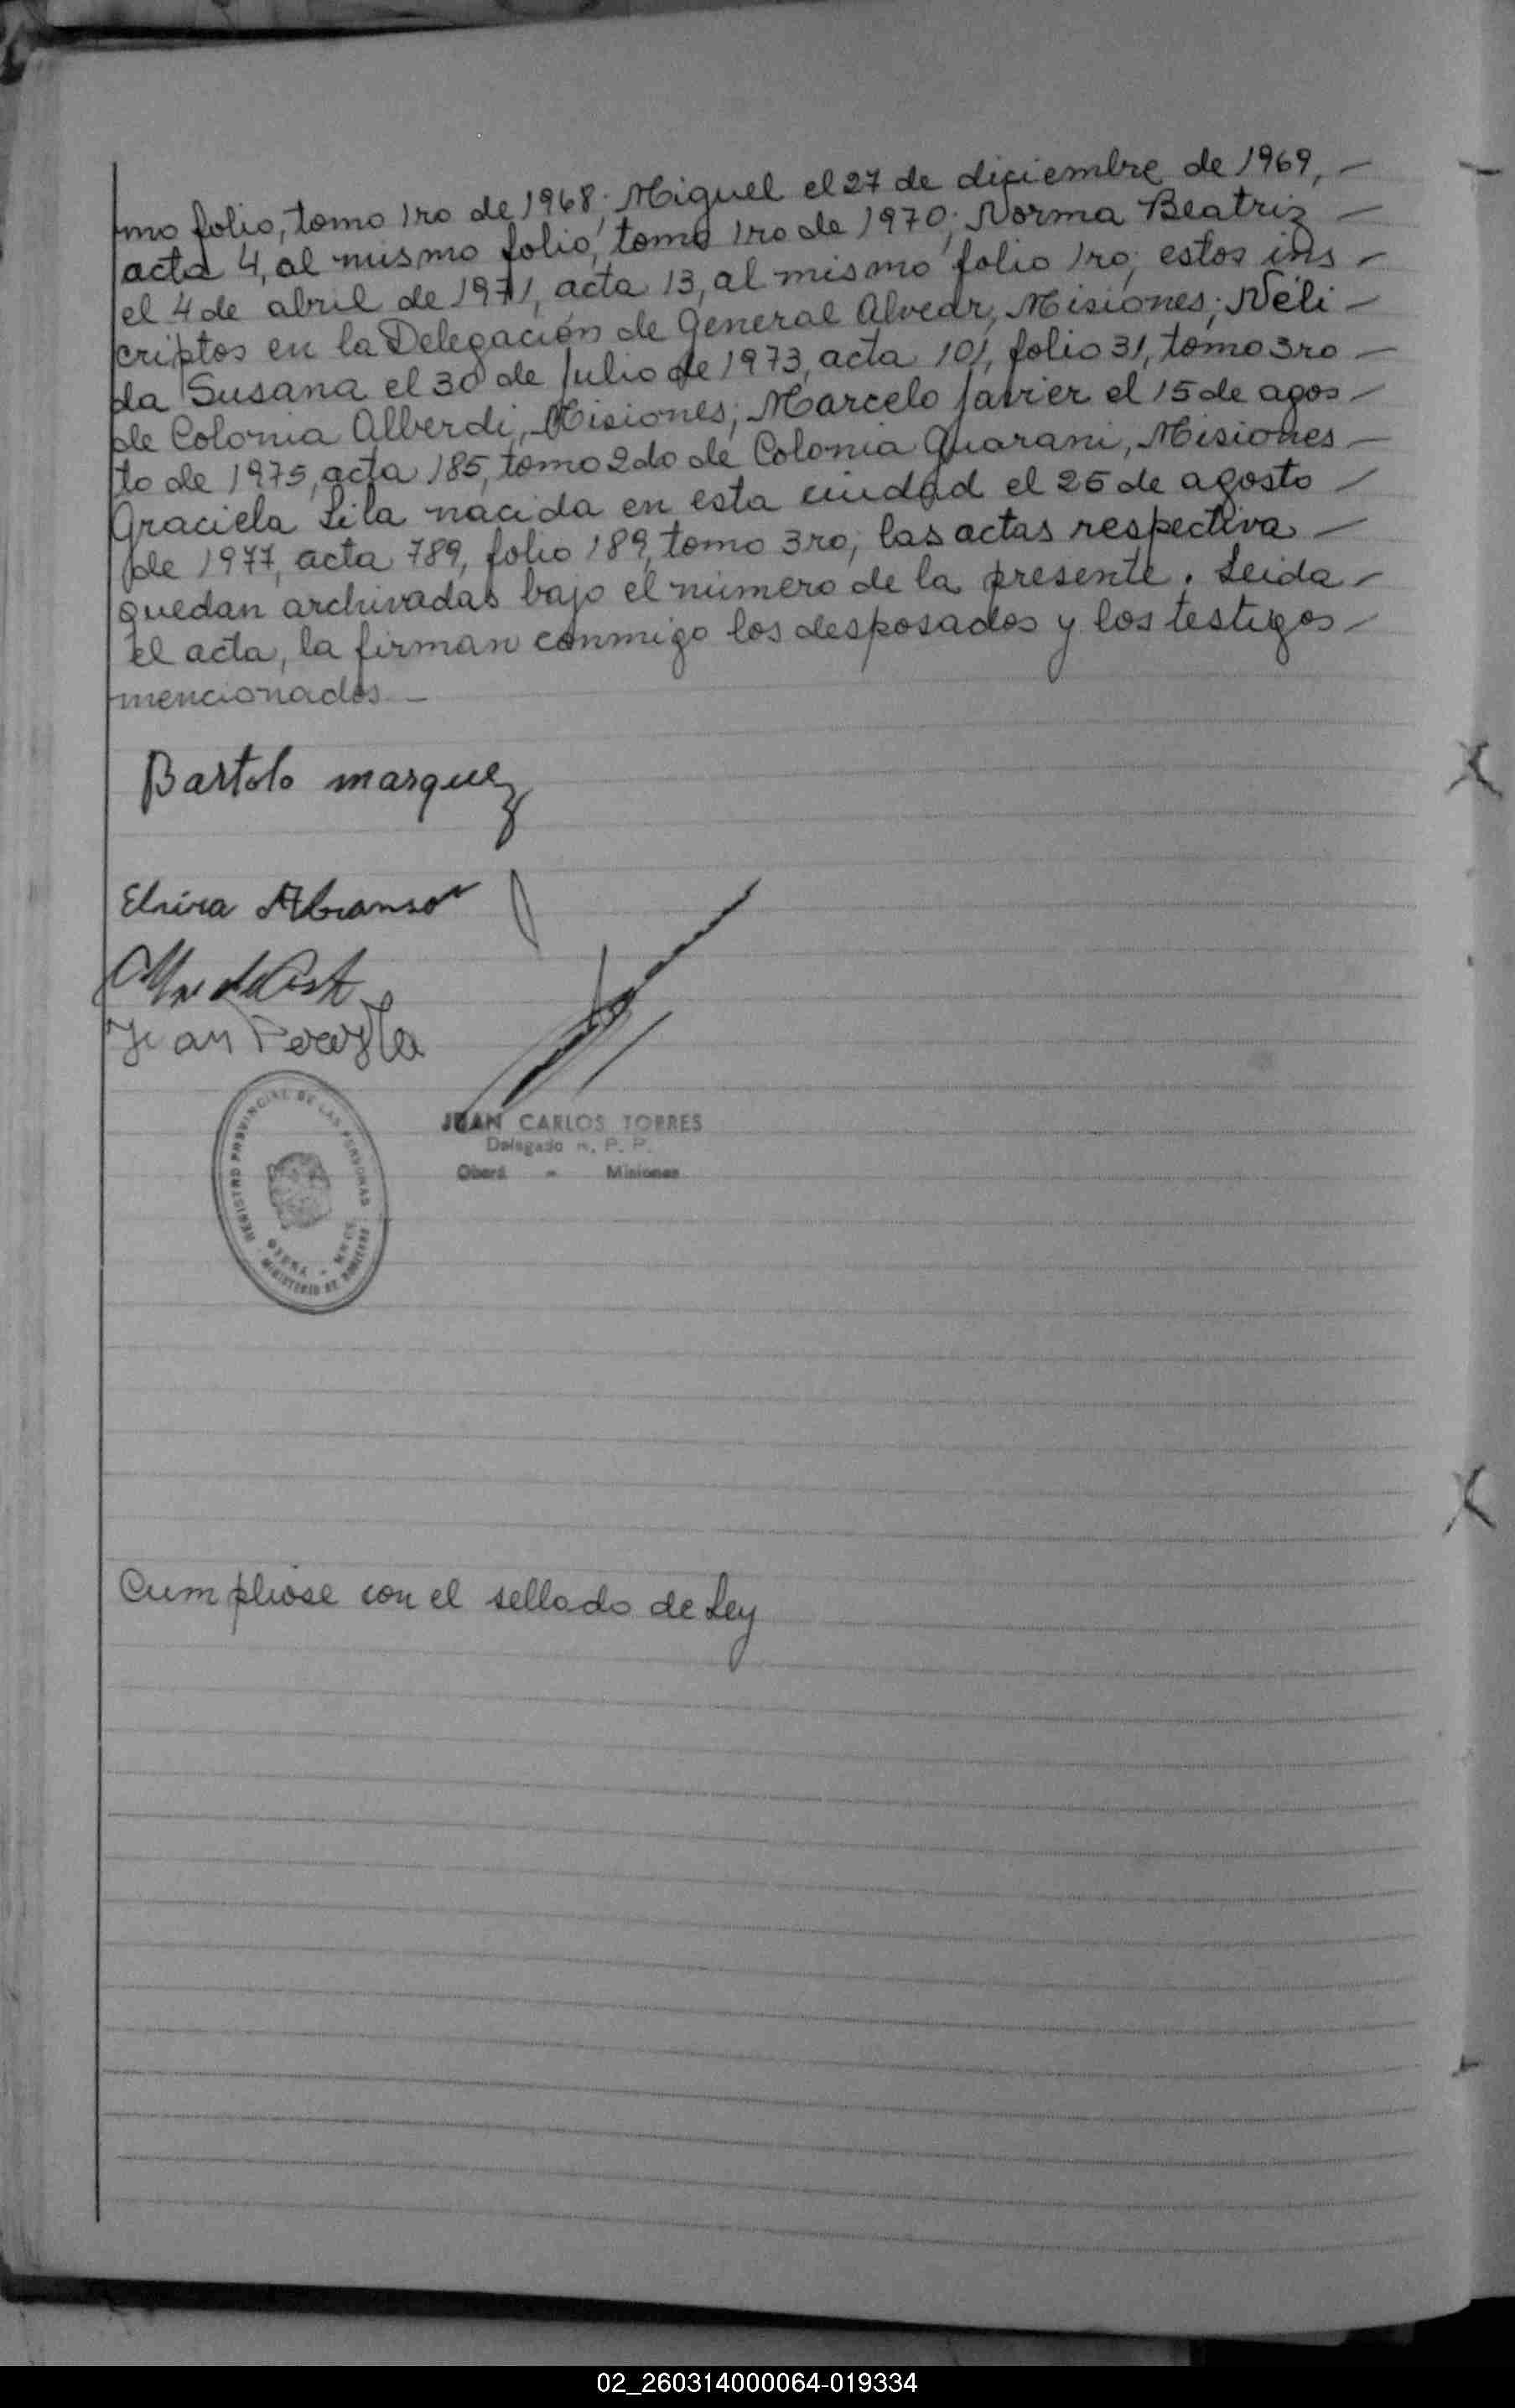 mo folio, tomo 1ro de 1968; Miguel el 27 de diciembre de 1969, –
acta 4, al mismo folio, tomo 1ro de 1970; Norma Beatriz –
el 4 de abril de 1971, acta 13, al mismo folio 1ro; estos ins –
criptos en la Delegación de General Alvear, Misiones; Néli –
da Susana el 30 de Julio de 1973, acta 101, folio 31, tomo 3ro –
de Colonia Alberdi, Misiones; Marcelo Javier el 15 de agos –
to de 1975, acta 185, tomo 2do de Colonia Guarani, Misiones –
Graciela Lila nacida en esta ciudad el 25 de agosto –
de 1977, acta 789, folio 189, tomo 3ro; las actas respectiva –
quedan archivadas bajo el número de la presente. Leida –
el acta, la firman conmigo los desposados y los testigos –
mencionados –
Bartolo marquez
Elvira Abranson
JUAN CARLOS TORRES
Delegado R. P. P.
Oberá - Misiones
REGISTRO PROVINCIAL DE LAS PERSONAS
MINISTERIO DE
Cumpliose con el sellado de Ley
02_260314000064-019334